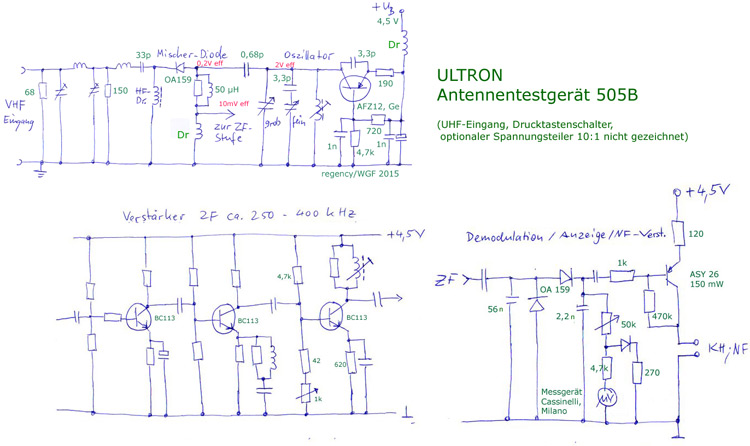 +U_B
4,5 V
Dr
33p
Mischer-Diode
0,2V eff
0,68p
Oszillator
2V eff
3,3p
OA159
3,3p
190
68
150
HF-
Dr.
50 µH
10mV eff
AFZ12, Ge
VHF
Eingang
Dr
zur ZF-
Stufe
grob
fein
720
1n
4,7k
1n
regency/WGF 2015
ULTRON
Antennentestgerät 505B
(UHF-Eingang, Drucktastenschalter,
optionaler Spannungsteiler 10:1 nicht gezeichnet)
Verstärker ZF ca. 250 - 400 kHz
+4,5V
4,7k
BC113
BC113
BC113
42
620
1k
+4,5V
Demodulation / Anzeige/NF-Verst.
120
1k
ZF
OA 159
ASY 26
150 mW
56n
2,2n
50k
470k
KH; NF
4,7k
270
Messgerät
Cassinelli,
Milano
µV